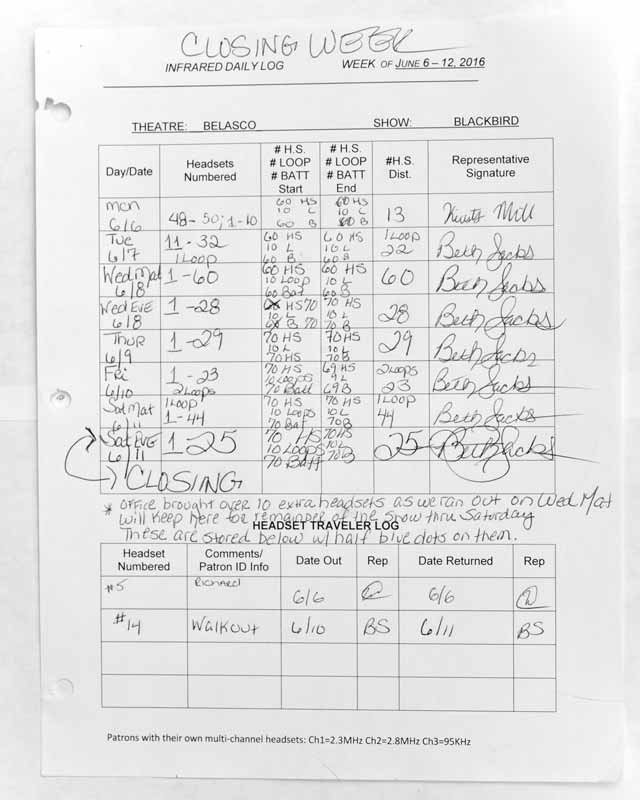 CLOSING WEEK
INFRARED DAILY LOG WEEK OF JUNE 6 – 12, 2016
THEATRE: BELASCO SHOW: BLACKBIRD
Day/Date Headsets Numbered # H.S. # LOOP # BATT Start # H.S. # LOOP # BATT End #H.S. Dist. Representative Signature
Mon 6/6 48-50; 1-10 60 HS 10 L 60 B 60 HS 10 L 60 B 13
Tue 6/7 11-32 1 Loop 60 HS 10 L 60 B 60 HS 10 L 60 B 1 Loop 22 Beth Jacks
Wed Mat 6/8 1-60 60 HS 10 Loop 60 Bat 60 HS 10 L 60 B 60 Beth Jacks
Wed EVE 6/8 1-28 HS 70 10 L B 70 70 HS 10 L 70 B 28 Beth Jacks
Thur 6/9 1-29 70 HS 10 L 70 HS 70 HS 10 L 70 B 29 Beth Jacks
Fri 6/10 1-23 2 Loops 70 HS 10 Loops 70 Batt 69 HS 9 L 69 B 2 Loops 23 Beth Jacks
Sat Mat 6/11 1 Loop 1-44 70 HS 10 Loops 70 Bat 70 HS 10 L 70 B 1 Loop 44 Beth Jacks
Sat EVE 6/11 1-25 70 HS 10 Loops 70 Batt 70 HS 10 L 70 B 25 Beth Jacks
CLOSING
* Office brought over 10 extra headsets as we ran out on Wed Mat
will keep here for remainder of the show thru Saturday
HEADSET TRAVELER LOG
These are stored below w/ half blue dots on them.
Headset Numbered Comments/ Patron ID Info Date Out Rep Date Returned Rep
#5 Richard 6/6 6/6
#14 Walkout 6/10 BS 6/11 BS
Patrons with their own multi-channel headsets: Ch1=2.3MHz Ch2=2.8MHz Ch3=95KHz